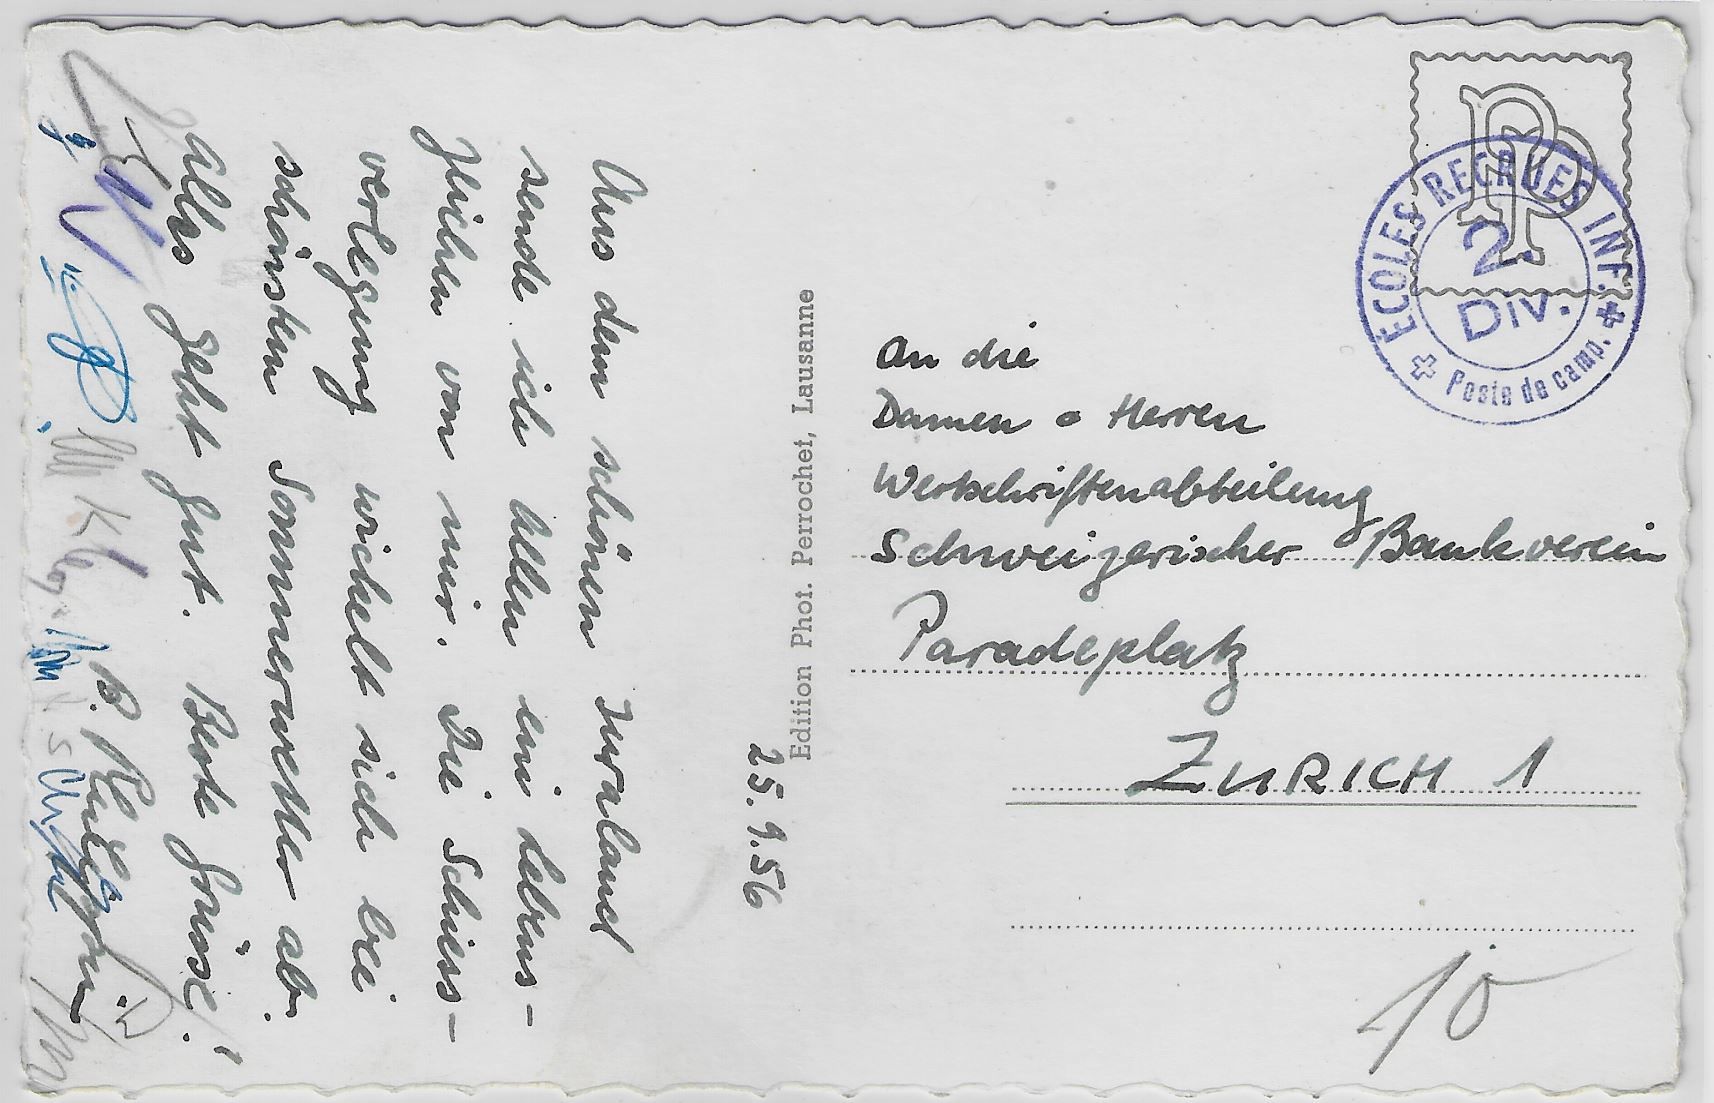 25. 9. 56
Aus dem schönen Juraland
sende ich Allen ein Lebens-
zeichen von mir. Die Schiess-
verlegung wickelt sich bei
schönsten Sommerwetter ab.
Alles geht gut. Beste Grüsse!
B.
Edition Phot. Perrochet, Lausanne
PP
ECOLES RECRUES INF.
2
Div.
Poste de camp.
An die
Damen & Herren
Wertschriftenabteilung
Schweizerischer Bankverein
Paradeplatz
ZURICH 1
10